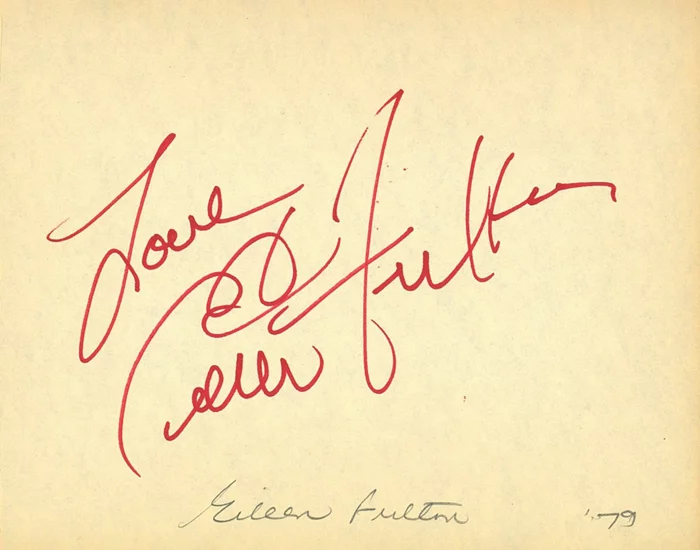 Love
Eileen Fulton
Eileen Fulton '79